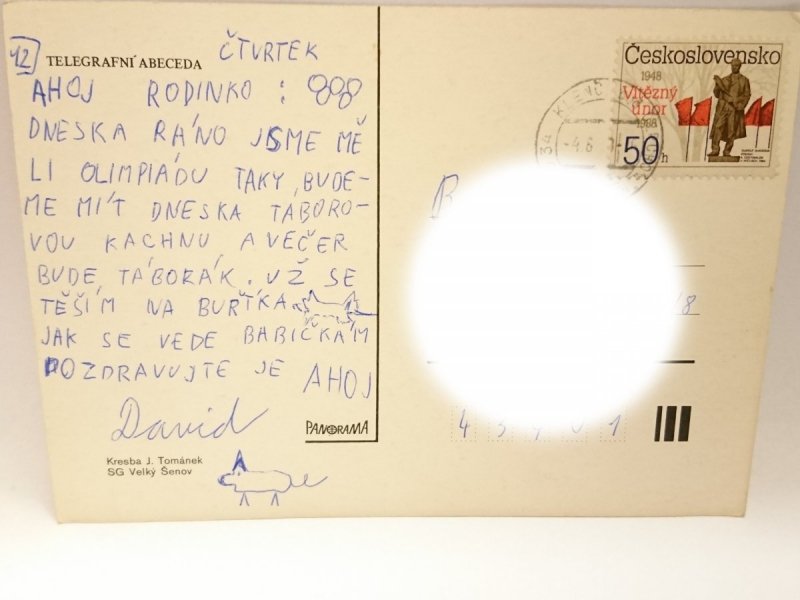 12 TELEGRAFNÍ ABECEDA ČTVRTEK
AHOJ RODINKO :
DNESKA RÁNO JSME MĚ
LI OLIMPIÁDU TAKY BUDE-
ME MÍT DNESKA TÁBORO-
VOU KACHNU, A VEČER
BUDE TÁBORÁK. UŽ SE
TĚŠÍM NA BUŘTÍKA
JAK SE VEDE BABIČKÁM
POZDRAVUJTE JE AHOJ
David
PANORAMA
Kresba J. Tománek
SG Velký Šenov
Československo
1948
Vítězný
únor
1988
50 h